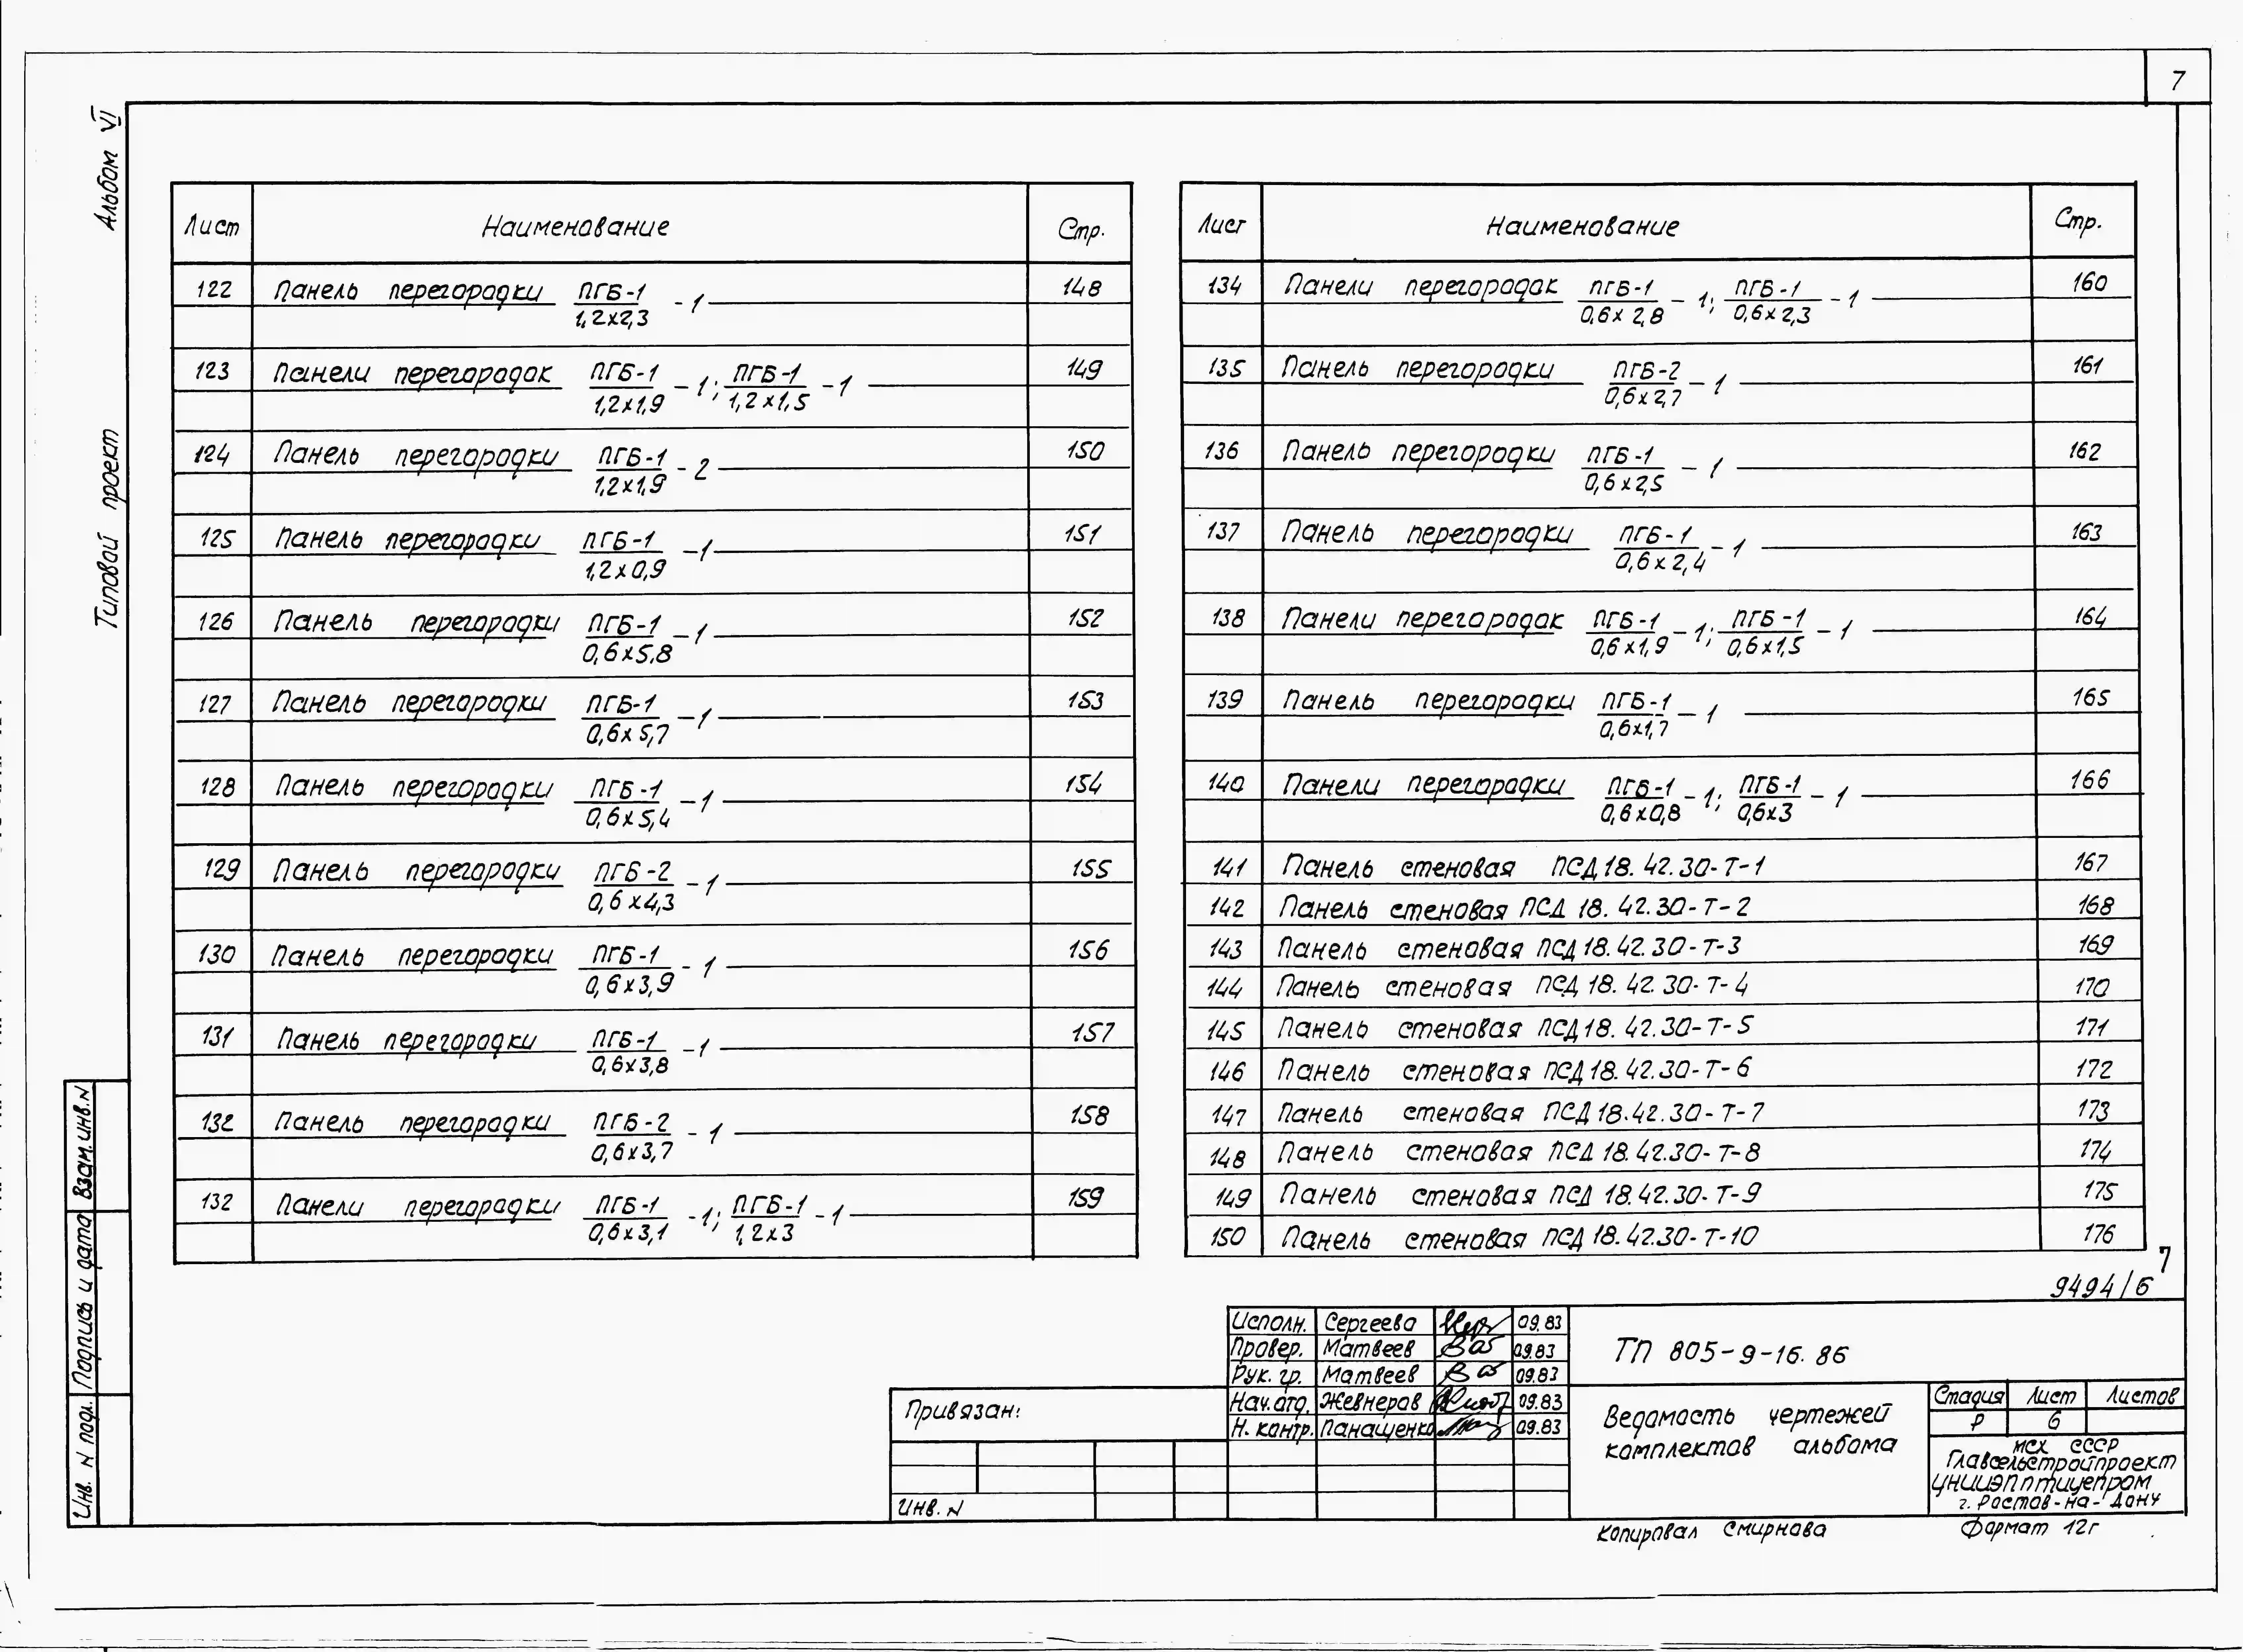 7
Альбом VI
Типовой проект
Лист Наименование Стр.
122 Панель перегородки ПГБ-1/1,2х2,3 -1 148
123 Панели перегородок ПГБ-1/1,2х1,9 -1; ПГБ-1/1,2х1,5 -1 149
124 Панель перегородки ПГБ-1/1,2х1,9 -2 150
125 Панель перегородки ПГБ-1/1,2х0,9 -1 151
126 Панель перегородки ПГБ-1/0,6х5,8 -1 152
127 Панель перегородки ПГБ-1/0,6х5,7 -1 153
128 Панель перегородки ПГБ-1/0,6х5,4 -1 154
129 Панель перегородки ПГБ-2/0,6х4,3 -1 155
130 Панель перегородки ПГБ-1/0,6х3,9 -1 156
131 Панель перегородки ПГБ-1/0,6х3,8 -1 157
132 Панель перегородки ПГБ-2/0,6х3,7 -1 158
132 Панели перегородки ПГБ-1/0,6х3,1 -1; ПГБ-1/1,2х3 -1 159
Лист Наименование Стр.
134 Панели перегородок ПГБ-1/0,6х2,8 -1; ПГБ-1/0,6х2,3 -1 160
135 Панель перегородки ПГБ-2/0,6х2,7 -1 161
136 Панель перегородки ПГБ-1/0,6х2,5 -1 162
137 Панель перегородки ПГБ-1/0,6х2,4 -1 163
138 Панели перегородок ПГБ-1/0,6х1,9 -1; ПГБ-1/0,6х1,5 -1 164
139 Панель перегородки ПГБ-1/0,6х1,7 -1 165
140 Панели перегородки ПГБ-1/0,6х0,8 -1; ПГБ-1/0,6х3 -1 166
141 Панель стеновая ПСД 18.42.30-Т-1 167
142 Панель стеновая ПСД 18.42.30-Т-2 168
143 Панель стеновая ПСД 18.42.30-Т-3 169
144 Панель стеновая ПСД 18.42.30-Т-4 170
145 Панель стеновая ПСД 18.42.30-Т-5 171
146 Панель стеновая ПСД 18.42.30-Т-6 172
147 Панель стеновая ПСД 18.42.30-Т-7 173
148 Панель стеновая ПСД 18.42.30-Т-8 174
149 Панель стеновая ПСД 18.42.30-Т-9 175
150 Панель стеновая ПСД 18.42.30-Т-10 176
7
9494/6
Исполн. Сергеева 09.83
Провер. Матвеев 09.83
Рук. гр. Матвеев 09.83
Нач. отд. Жевнеров 09.83
Н. контр. Панащенко 09.83
ТП 805-9-16.86
Ведомость чертежей
комплектов альбома
Стадия Лист Листов
Р 6
МСХ СССР
Главсельстройпроект
ЦНИИЭПптицепром
г. Ростов-на-Дону
Привязан:
Инв. N
Копировал Смирнова
Формат 12г
Взам. инв. N
Подпись и дата
Инв. N подл.